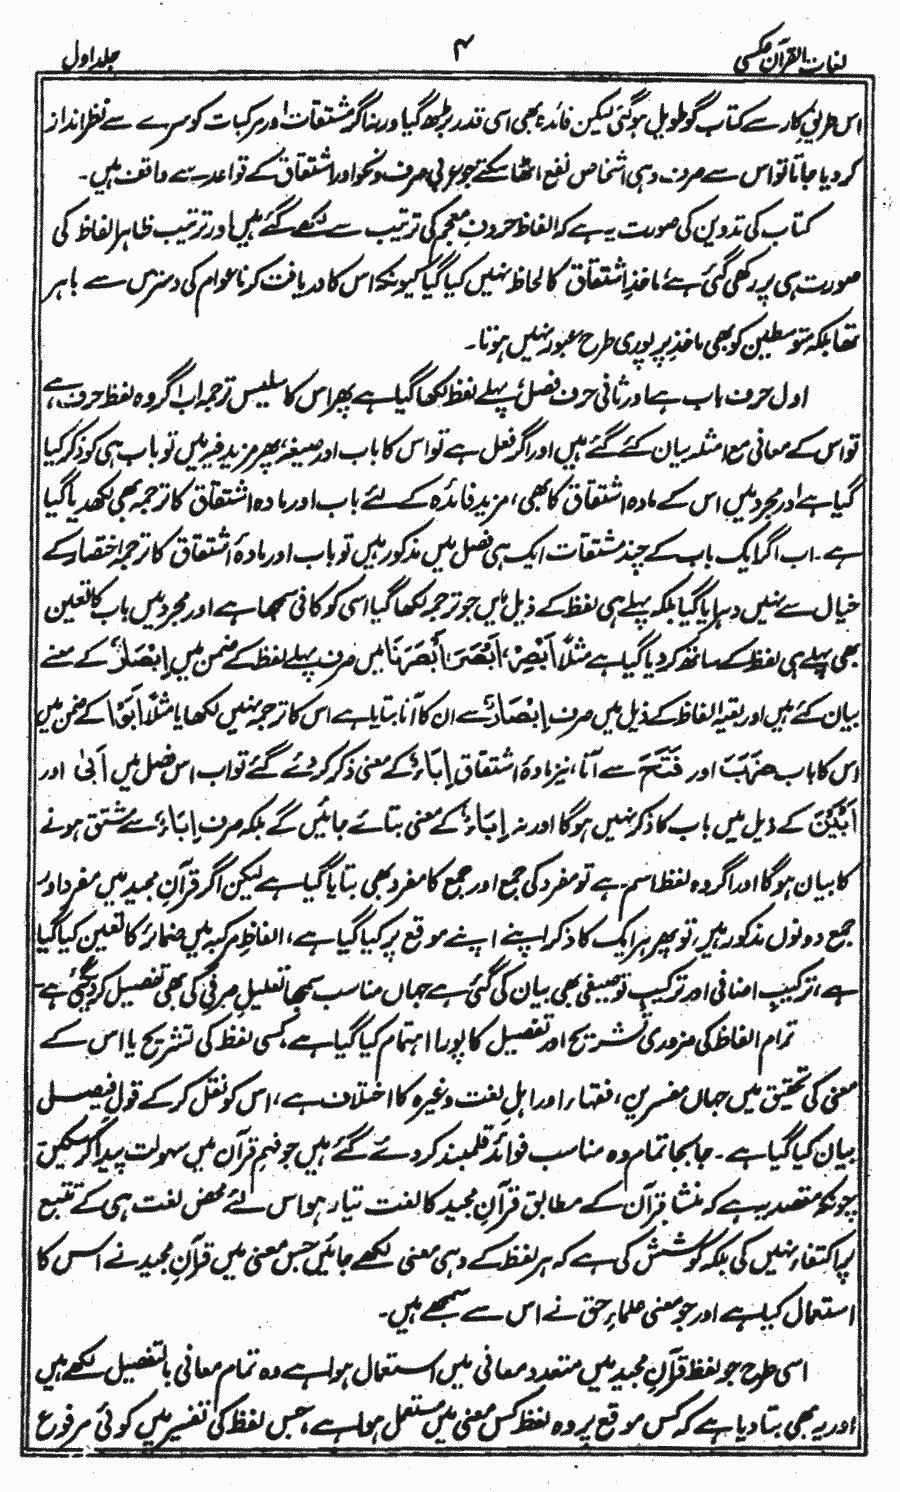 لغات القرآن عکسی
۴
جلد اول
اس طریقِ کار سے کتاب گو طویل ہوگئی لیکن فائدہ بھی اسی قدر بڑھ گیا ورنہ اگر مشتقات اور مرکبات کو سرے سے نظر انداز
کر دیا جاتا تو اس سے صرف وہی اشخاص نفع اٹھا سکتے جو عربی صرف و نحو اور اشتقاق کے قواعد سے واقف ہیں۔
کتاب کی تدوین کی صورت یہ ہے کہ الفاظ حروفِ معجم کی ترتیب سے لکھے گئے ہیں اور ترتیب ظاہر الفاظ کی
صورت ہی پر رکھی گئی ہے ماخذِ اشتقاق کا لحاظ نہیں کیا گیا کیونکہ اس کا دریافت کرنا عوام کی دسترس سے باہر
تھا بلکہ متوسطین کو بھی ماخذ پر پوری طرح عبور نہیں ہوتا۔
اول حرف باب ہے اور ثانی حرف فصل، پہلے لفظ لکھا گیا ہے پھر اس کا سلیس ترجمہ اب اگر وہ لفظ حرف ہے،
تو اس کے معانی مع امثلہ بیان کئے گئے ہیں اور اگر فعل ہے تو اس کا باب اور صیغہ، پھر مزید فیہ میں تو باب ہی کو ذکر کیا
گیا ہے اور مجرد میں اس کے مادہ اشتقاق کا بھی، مزید فائدہ کے لئے باب اور مادہ اشتقاق کا ترجمہ بھی لکھدیا گیا
ہے۔ اب اگر ایک باب کے چند مشتقات ایک ہی فصل میں مذکور ہیں تو باب اور مادۂ اشتقاق کا ترجمہ اختصار کے
خیال سے نہیں دہرایا گیا بلکہ پہلے ہی لفظ کے ذیل میں جو ترجمہ لکھا گیا اسی کو کافی سمجھا ہے اور مجرد میں باب کا تعین
بھی پہلے ہی لفظ کے ساتھ کر دیا گیا ہے مثلاً اَبْصِرْ، اَبْصَرَ، اَبْصَرْنَا میں صرف پہلے لفظ کے ضمن میں اِبْصَارٌ کے معنے
بیان کئے ہیں اور بقیہ الفاظ کے ذیل میں صرف اِبْصَارٌ سے ان کا آنا بتایا ہے اس کا ترجمہ نہیں لکھا یا مثلاً اَبَوْا کے ضمن میں
اس کا باب ضَرَبَ اور فَتَحَ سے آنا، نیز مادۂ اشتقاق اِبَاءٌ کے معنی ذکر کر دئے گئے تو اب اس فصل میں اَبٰی اور
اَبَیْنَ کے ذیل میں باب کا ذکر نہیں ہوگا اور نہ اِبَاءٌ کے معنی بتائے جائیں گے بلکہ صرف اِبَاءٌ سے مشتق ہونے
کا بیان ہوگا اور اگر وہ لفظ اسم ہے تو مفرد کی جمع اور جمع کا مفرد بھی بتایا گیا ہے لیکن اگر قرآنِ مجید میں مفرد اور
جمع دونوں مذکور ہیں، تو پھر ہر ایک کا ذکر اپنے اپنے موقع پر کیا گیا ہے، الفاظِ مرکبہ میں ضمائر کا تعین کیا گیا
ہے، ترکیبِ اضافی اور ترکیبِ توصیفی بھی بیان کی گئی ہے جہاں مناسب سمجھا تعلیلِ صرفی کی بھی تفصیل کر دی گئی ہے
تمام الفاظ کی ضروری تشریح اور تفصیل کا پورا اہتمام کیا گیا ہے، کسی لفظ کی تشریح یا اس کے
معنی کی تحقیق میں جہاں مفسرین، فقہاء اور اہلِ لغت وغیرہ کا اختلاف ہے، اس کو نقل کر کے قولِ فیصل
بیان کیا گیا ہے۔ جا بجا تمام وہ مناسب فوائد قلمبند کر دئے گئے ہیں جو فہمِ قرآن میں سہولت پیدا کر سکیں
چونکہ مقصد یہ ہے کہ منشأِ قرآن کے مطابق قرآنِ مجید کا لغت تیار ہو اس لئے محض لغت ہی کے تتبع
پر اکتفاء نہیں کی بلکہ کوشش کی ہے کہ ہر لفظ کے وہی معنی لکھے جائیں جس معنی میں قرآنِ مجید نے اس کا
استعمال کیا ہے اور جو معنی علماءِ حق نے اس سے سمجھے ہیں۔
اسی طرح جو لفظ قرآنِ مجید میں متعدد معانی میں استعمال ہوا ہے وہ تمام معانی بالتفصیل لکھے ہیں
اور یہ بھی بتا دیا ہے کہ کس موقع پر وہ لفظ کس معنی میں مستعمل ہوا ہے، جس لفظ کی تفسیر میں کوئی مرفوع